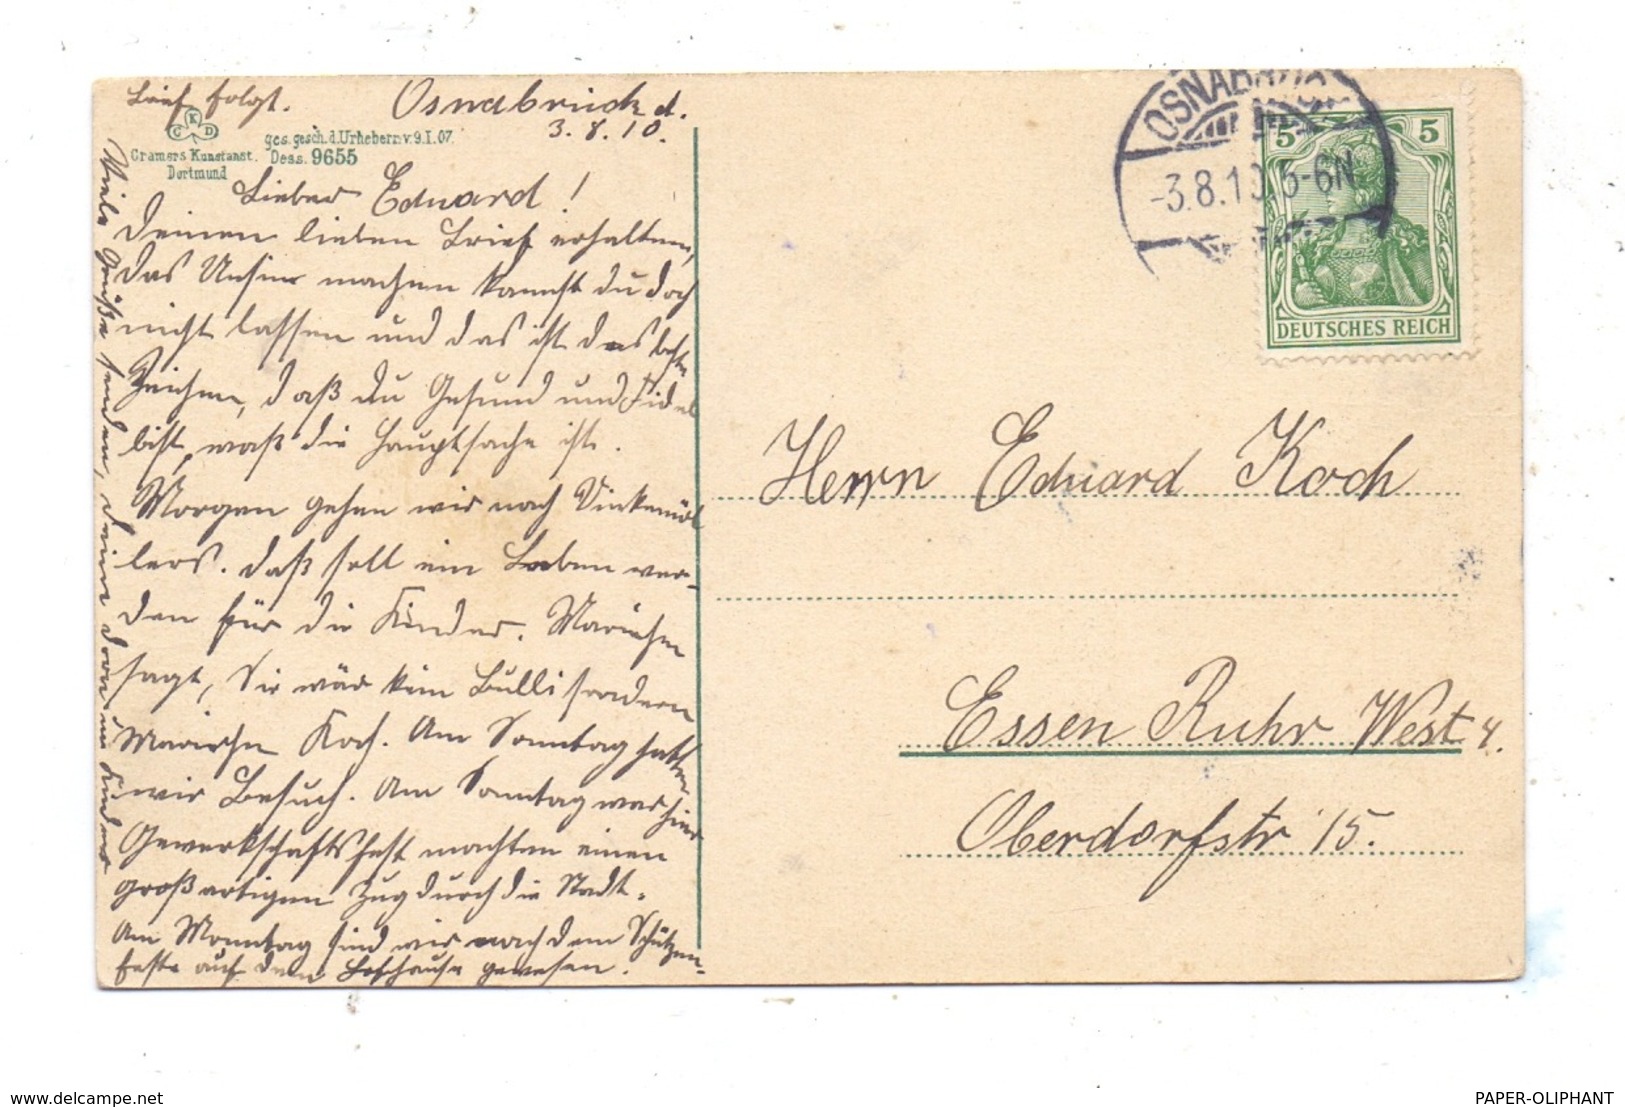 Brief folgt.
Osnabrück d.
3.8.10.
C K D
Cramers Kunstanst.
Dortmund
ges. gesch. d. Urheberr. v. 9.I.07.
Dess. 9655
Lieber Eduard!
Deinen lieben Brief erhalten,
das Unsinn machen kannst du doch
nicht lassen und das ist das beste
Zeichen, daß du Gesund und Fidel
bist, waß die Hauptsache ist.
Morgen gehen wir nach
lers. Daß soll ein Leben wer-
den für die Kinder. Mariechen
sagt, Sie wär kein Bulli sondern
Mariechen Koch. Am Sonntag hatten
wir Besuch. Am Sonntag war hier
Gewerkschaftsfest machten einen
großartigen Zug durch die Stadt.
Am Montag sind wir nach dem Schützen-
feste auf dem gewesen.
Viele Grüße senden, deine Kinder
OSNABRÜCK
-3.8.10.5-6N
5 5
DEUTSCHES REICH
Herrn Eduard Koch
Essen Ruhr West 4.
Oberdorfstr 15.
www.delcampe.net
PAPER-OLIPHANT